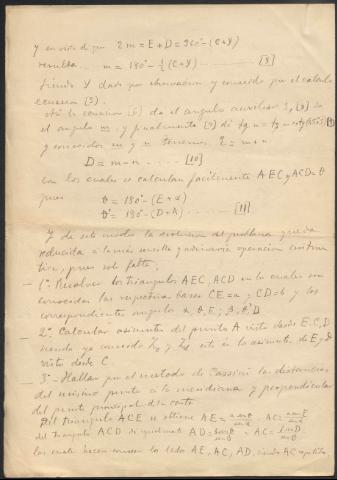 y en vista de que 2m = E + D = 360° - (C+Y)
resulta... m = 180° - ½ (C+Y) ------- [8]
siendo Y dado por observacion y conocido por el calculo
ecuacion [5].
Asi la ecuacion [6] da el angulo auxiliar [8] da
el angulo m; y finalmente [9] da tg n = tg m
y conocidos m y n tenemos E = m + n
D = m - n ..... [10]
con los cuales se calculan facilmente AEC y ACD = θ
pues
θ = 180° - (E + α)
θ' = 180° - (D + A) ........ [11]
Y de este modo la solucion del problema queda
reducida a la más sencilla y ordinaria operacion
pues solo falta;
1º Resolver los triangulos AEC, ACD en los cuales son
conocidas las respectivas bases CE = a y CD = b y los
correspondientes angulos α, θ, E; β, θ', D
2º Calcular asimuts del punto A visto desde E, C, D
siendo ya conocido Z y Z esto es la asimuts de E y D
visto desde C.
3º Hallar por el metodo de Cassini las distancias
del mismo punto a la meridiana y perpendicular
del punto principal de la carta
Del triangulo ACE se obtiene AE = AC =
del triangulo ACD igualmente AD = AC =
los cuales hacen conocer los lados AE, AC, AD, siendo AC